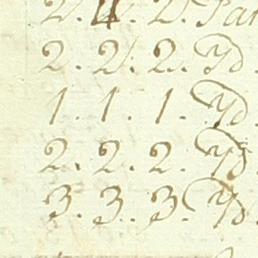 2. 4. 2. Par
2. 2. 2. Yd.
1. 1. 1. Yd.
2. 2. 2. Yd.
3. 3. 3. Yd.